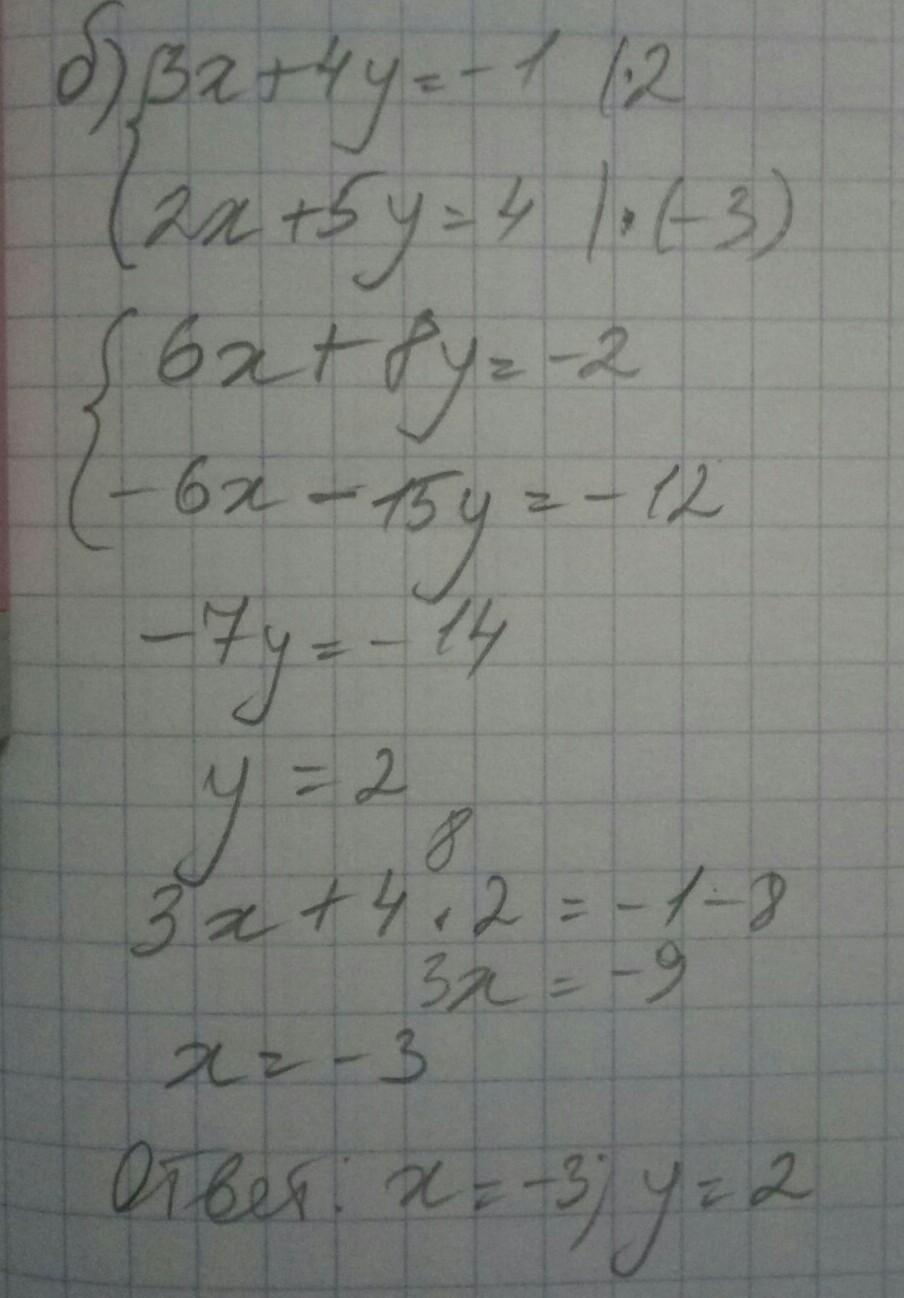 б) 3x + 4y = -1 | · 2
2x + 5y = 4 | · (-3)
6x + 8y = -2
-6x - 15y = -12
-7y = -14
y = 2
8
3x + 4 · 2 = -1 - 8
3x = -9
x = -3
Ответ: x = -3; y = 2